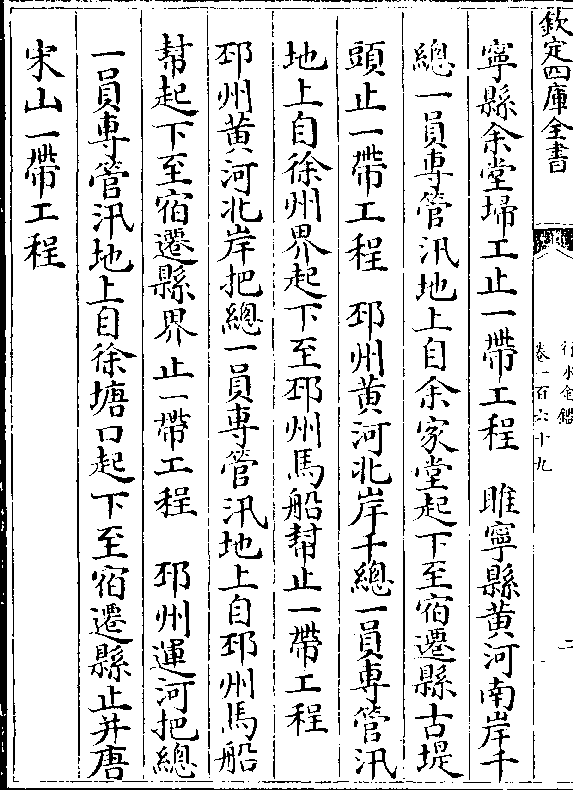 欽定四庫全書
行水金鑑
卷一百六十九
二
寧縣余堂埽工止一帶工程　睢寧縣黃河南岸千
總一員專管汛地上自余家堂起下至宿遷縣古堤
頭止一帶工程　邳州黃河北岸千總一員專管汛
地上自徐州界起下至邳州馬船幇止一帶工程
邳州黃河北岸把總一員專管汛地上自邳州馬船
幇起下至宿遷縣界止一帶工程　邳州運河把總
一員専管汛地上自徐塘口起下至宿遷縣止并唐
宋山一帶工程